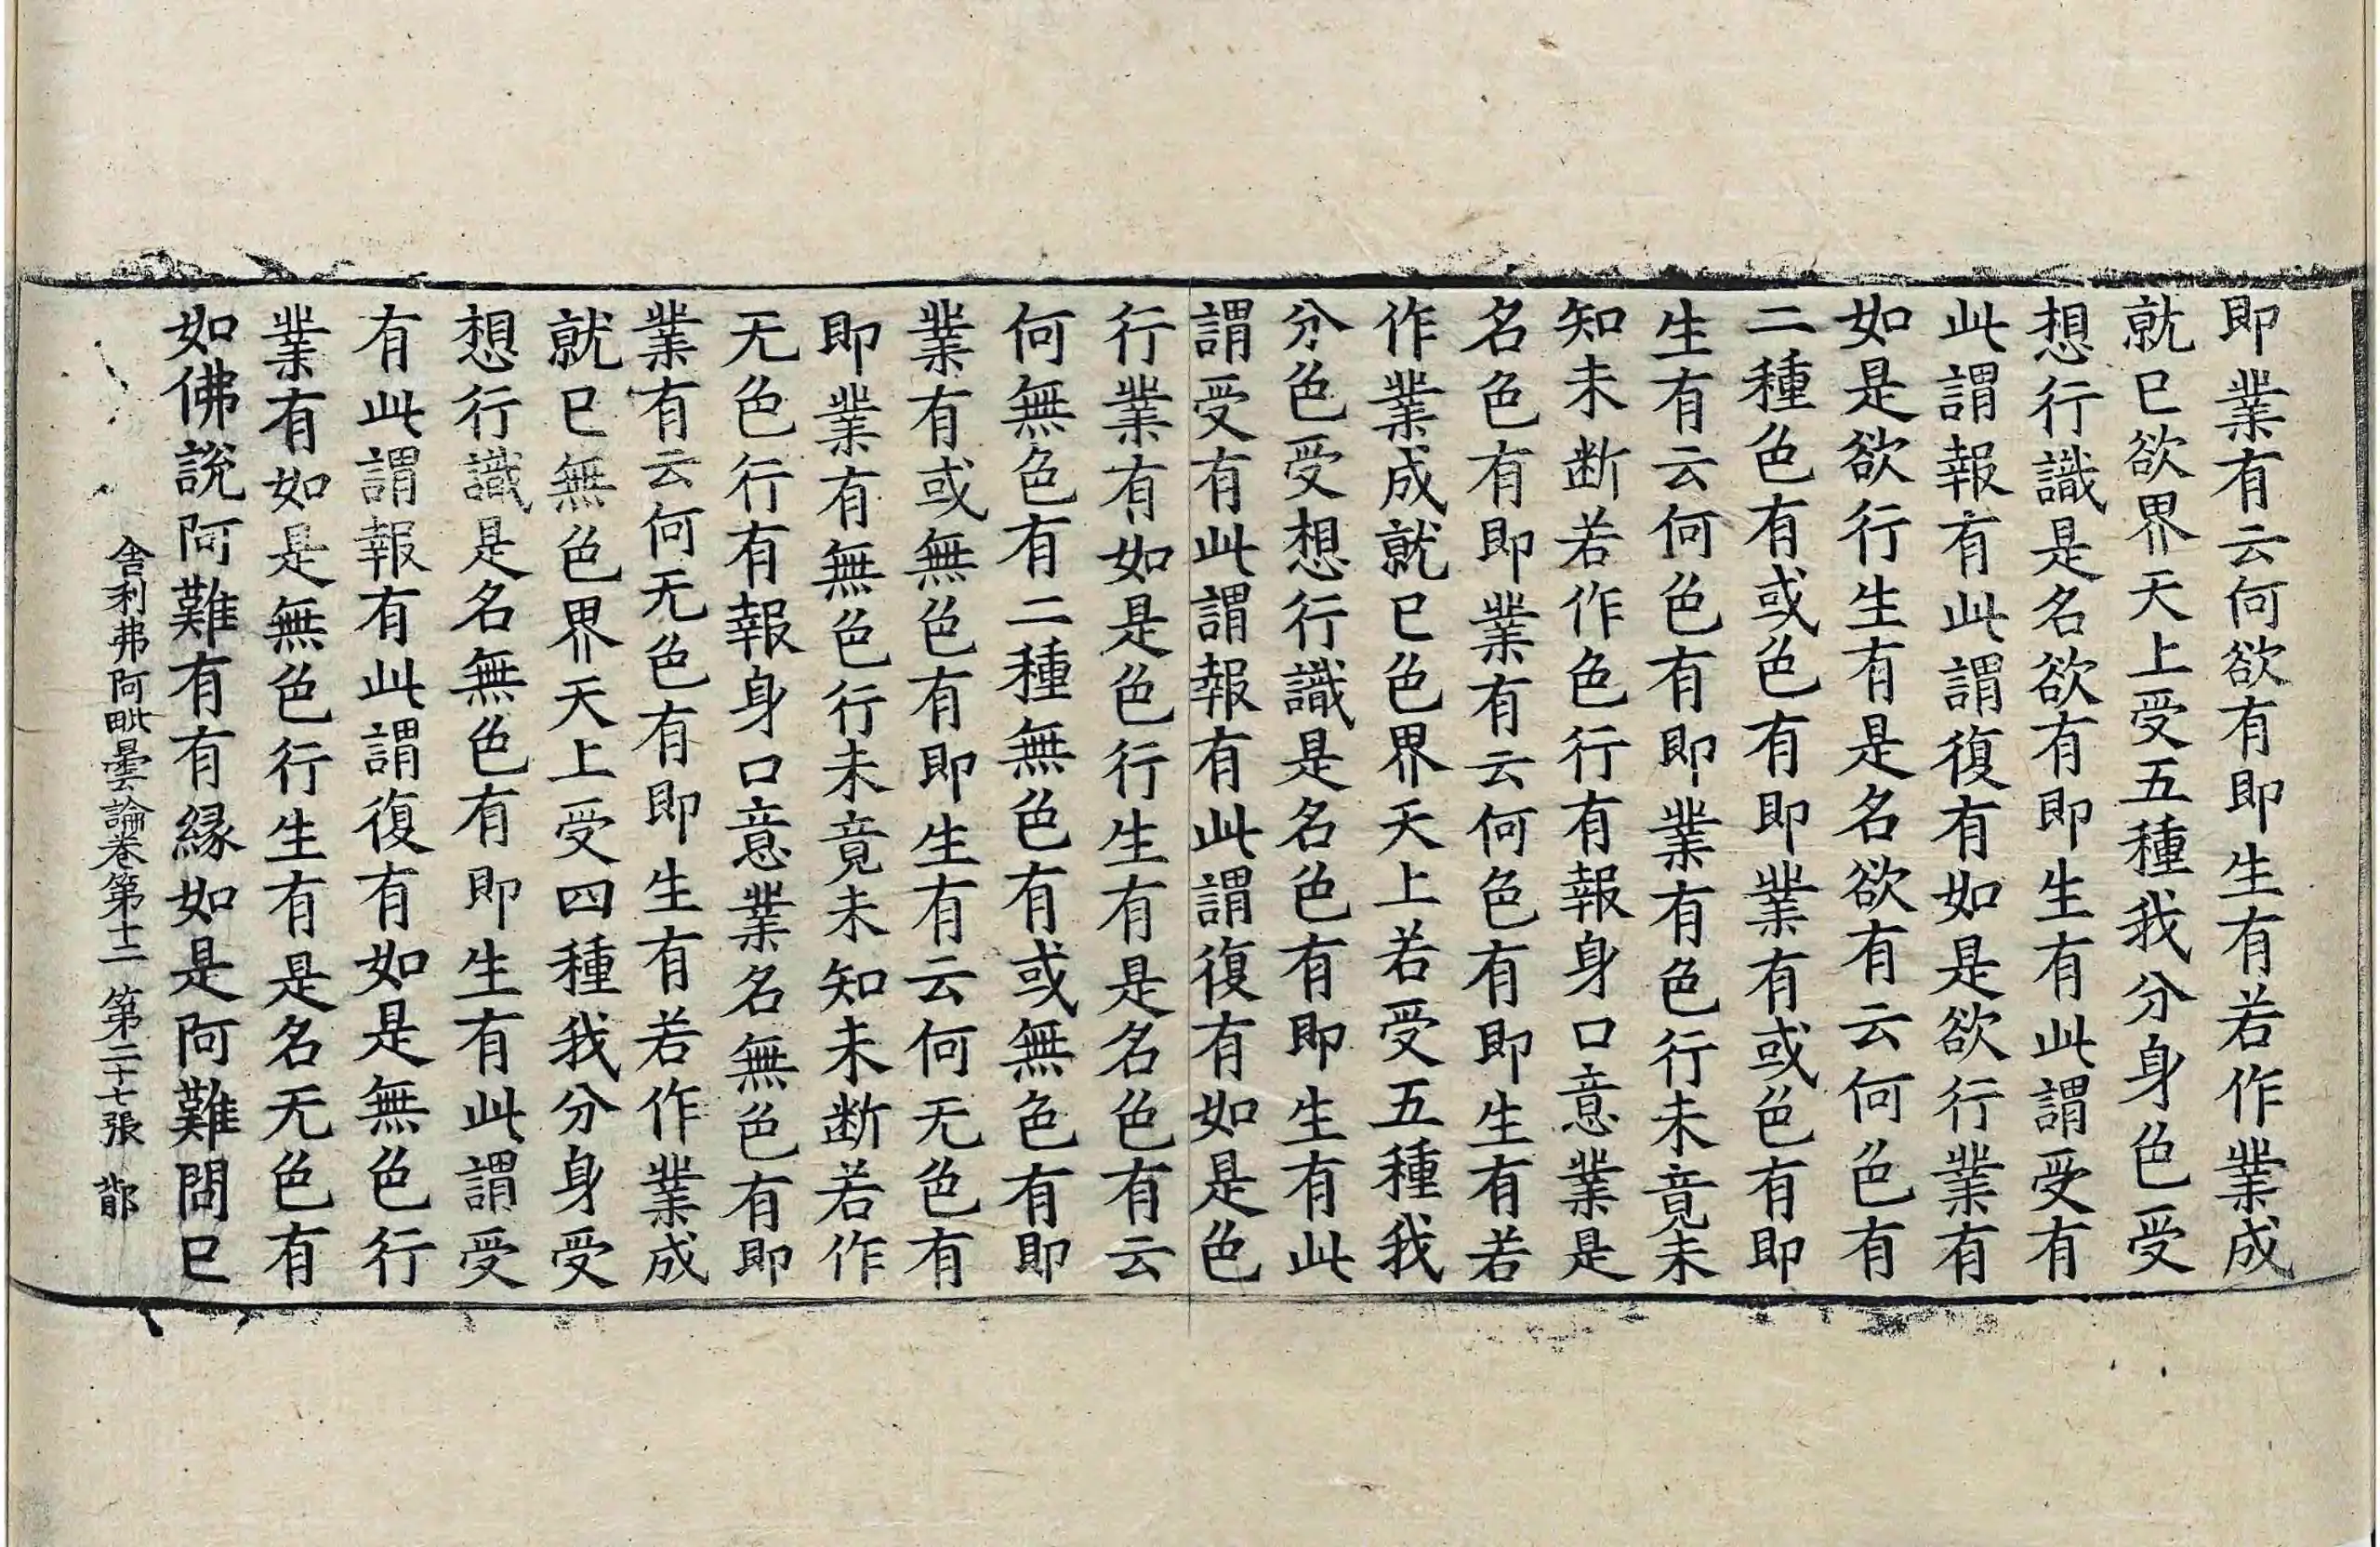 即業有云何欲有即生有若作業成
就已欲界天上受五種我分身色受
想行識是名欲有即生有此謂受有
此謂報有此謂復有如是欲行業有
如是欲行生有是名欲有云何色有
二種色有或色有即業有或色有即
生有云何色有即業有色行未竟未
知未断若作色行有報身口意業是
名色有即業有云何色有即生有若
作業成就已色界天上若受五種我
分色受想行識是名色有即生有此
謂受有此謂報有此謂復有如是色
行業有如是色行生有是名色有云
何無色有二種無色有或無色有即
業有或無色有即生有云何无色有
即業有無色行未竟未知未断若作
无色行有報身口意業名無色有即
業有云何无色有即生有若作業成
就已無色界天上受四種我分身受
想行識是名無色有即生有此謂受
有此謂報有此謂復有如是無色行
業有如是無色行生有是名无色有
如佛說阿難有有縁如是阿難問已
舍利弗阿毗曇論卷第十二 第二十七張